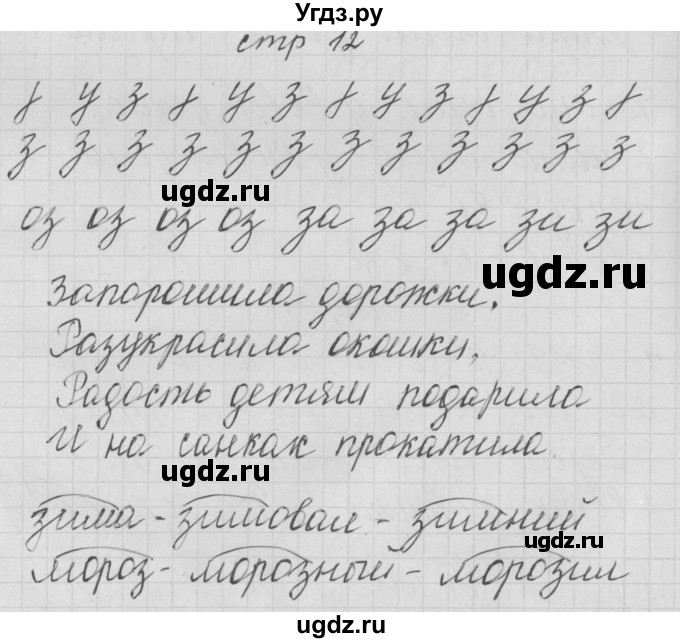 Угдз.ру
стр 12
ј у з ј у з ј у з ј у з ј
з з з з з з з з з з з з
ugdz.ru
оз оз оз оз за за за зи зи
ugdz.ru
Запорошила дорожки,
Разукрасила окошки,
Радость детям подарила
И на санках прокатила.
ugdz.ru
зима - зимовал - зимний
ugdz.ru
мороз - морозный - морозил
Угдз.ру